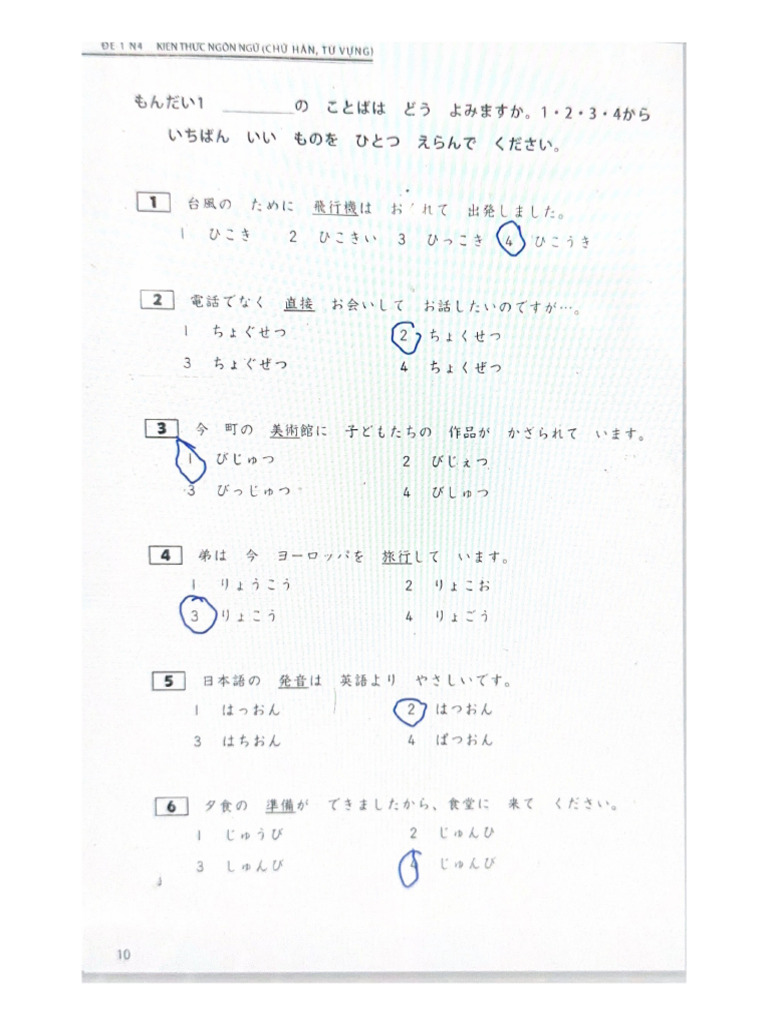 ĐỀ 1 N4 KIẾN THỨC NGÔN NGỮ (CHỮ HÁN, TỪ VỰNG)
もんだい1 ________の ことばは どう よみますか。1・2・3・4から
いちばん いい ものを ひとつ えらんで ください。
1 台風の ために 飛行機は お れて 出発しました。
1 ひこき 2 ひこきい 3 ひっこき 4 ひこうき
2 電話でなく 直接 お会いして お話したいのですが…。
1 ちょぐせつ 2 ちょくせつ
3 ちょぐぜつ 4 ちょくぜつ
3 今 町の 美術館に 子どもたちの 作品が かざられて います。
1 びじゅつ 2 びじぇつ
3 びっじゅつ 4 びしゅつ
4 弟は 今 ヨーロッパを 旅行して います。
1 りょうこう 2 りょこお
3 りょこう 4 りょごう
5 日本語の 発音は 英語より やさしいです。
1 はっおん 2 はつおん
3 はちおん 4 ぱつおん
6 夕食の 準備が できましたから、食堂に 来て ください。
1 じゅうび 2 じゅんひ
3 しゅんび 4 じゅんび
10